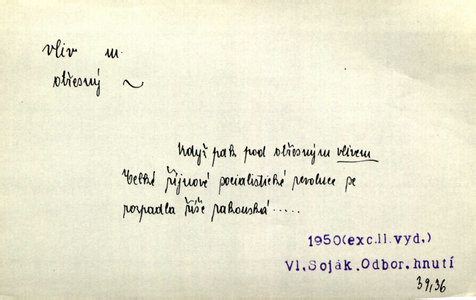 vliv m.
otřesný ~
Když pak pod otřesným vlivem
Velké říjnové socialistické revoluce se
rozpadla říše rakouská.....
1950(exc.II.vyd.)
Vl.Soják.Odbor.hnutí
39,36